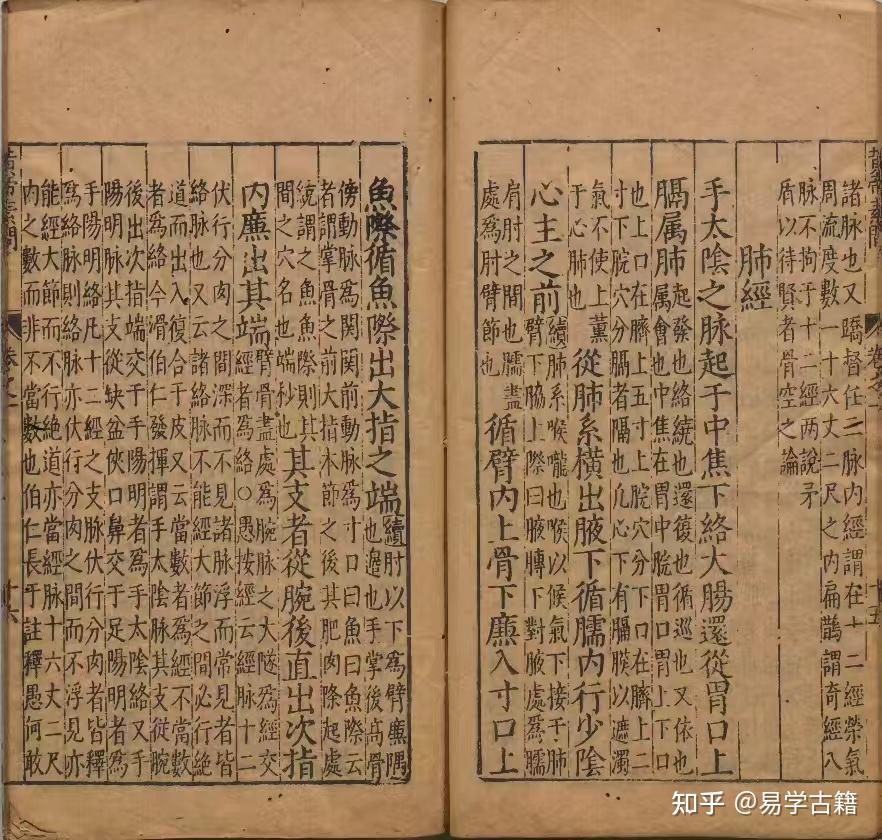 諸脉也又蹻督任二脉内經謂在十二經榮氣
周流度數一十六丈二尺之内扁鵲謂奇經八
脉不拘于十二經两說矛
盾以待賢者骨空之論
肺經
手太陰之脉起于中焦下絡大腸還從胃口上
膈属肺
起發也絡繞也還復也循巡也又依也
属會也中焦在胃中脘胃口胃上下口
也上口在臍上五寸上脘穴分下口在臍上二
寸下脘穴分膈者隔也凡心下有膈膜以遮濁
氣不使上薰
于心肺也
從肺系橫出腋下循臑内行少陰
心主之前
續肺系喉嚨也喉以候氣下接于肺
臂下脇上際曰腋膊下對腋處爲臑
肩肘之間也臑盡
處爲肘臂節也
循臂内上骨下廉入寸口上
黃帝素問
卷之一
十五
魚際循魚際出大指之端
續肘以下爲臂廉隅
也邊也手掌後高骨
傍動脉爲関関前動脉爲寸口曰魚曰魚際云
者謂掌骨之前大指本節之後其肥肉際起處
統謂之魚魚際則其
間之穴名也端杪也
其支者從腕後直出次指
内廉出其端
臂骨盡處爲腕脉之大隧爲經交
經者爲絡○愚按經云經脉十二
伏行分肉之間深而不見諸脉浮而常見者皆
絡脉也又云諸絡脉不能經大節之間必行絶
道而出入復合于皮又云當數者爲經不當數
者爲絡今滑伯仁發揮謂手太陰脉其支從腕
後出次指端交于手陽明者爲手太陰絡又手
陽明脉其支從缺盆俠口鼻交于足陽明者爲
手陽明絡凡十二經之支脉伏行分肉者皆釋
爲絡脉則絡脉亦伏行分肉之間而不浮見亦
能經大節而不行絶道亦當經脉十六丈二尺
内之數而非不當數也伯仁長于註釋愚何敢
黃帝素問
卷之一
十六
知乎 @易学古籍